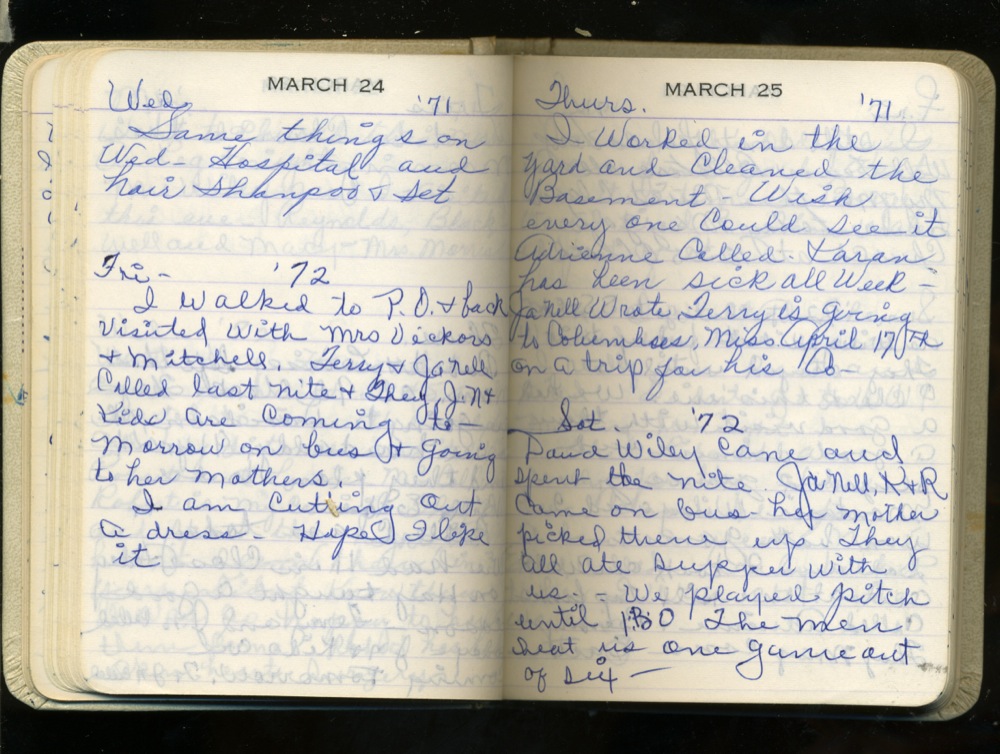 MARCH 24
Wed, '71
Same things on
Wed - Hospital and
hair shampoo & set
Fri - '72
I walked to P.O. & back
visited with Mrs Vickors
& Mitchell. Terry & JaNell
Called last nite & they, J.N &
Kids are coming to-
morrow on bus & going
to her mothers.
I am cutting out
a dress - Hope I like
it
MARCH 25
Thurs. '71
I Worked in the
yard and Cleaned the
Basement - Wish
every one Could see it
Adrienne Called - Laran
has been sick all Week -
JaNell Wrote Terry is going
to Columbus, Miss April 17th
on a trip for his Co -
Sat. '72
David Wiley Came and
spent the nite. JaNell, K & R
Came on bus - her mother
picked them up They
all ate supper with
us. - We played pitch
until The men
beat us one game out
of six -